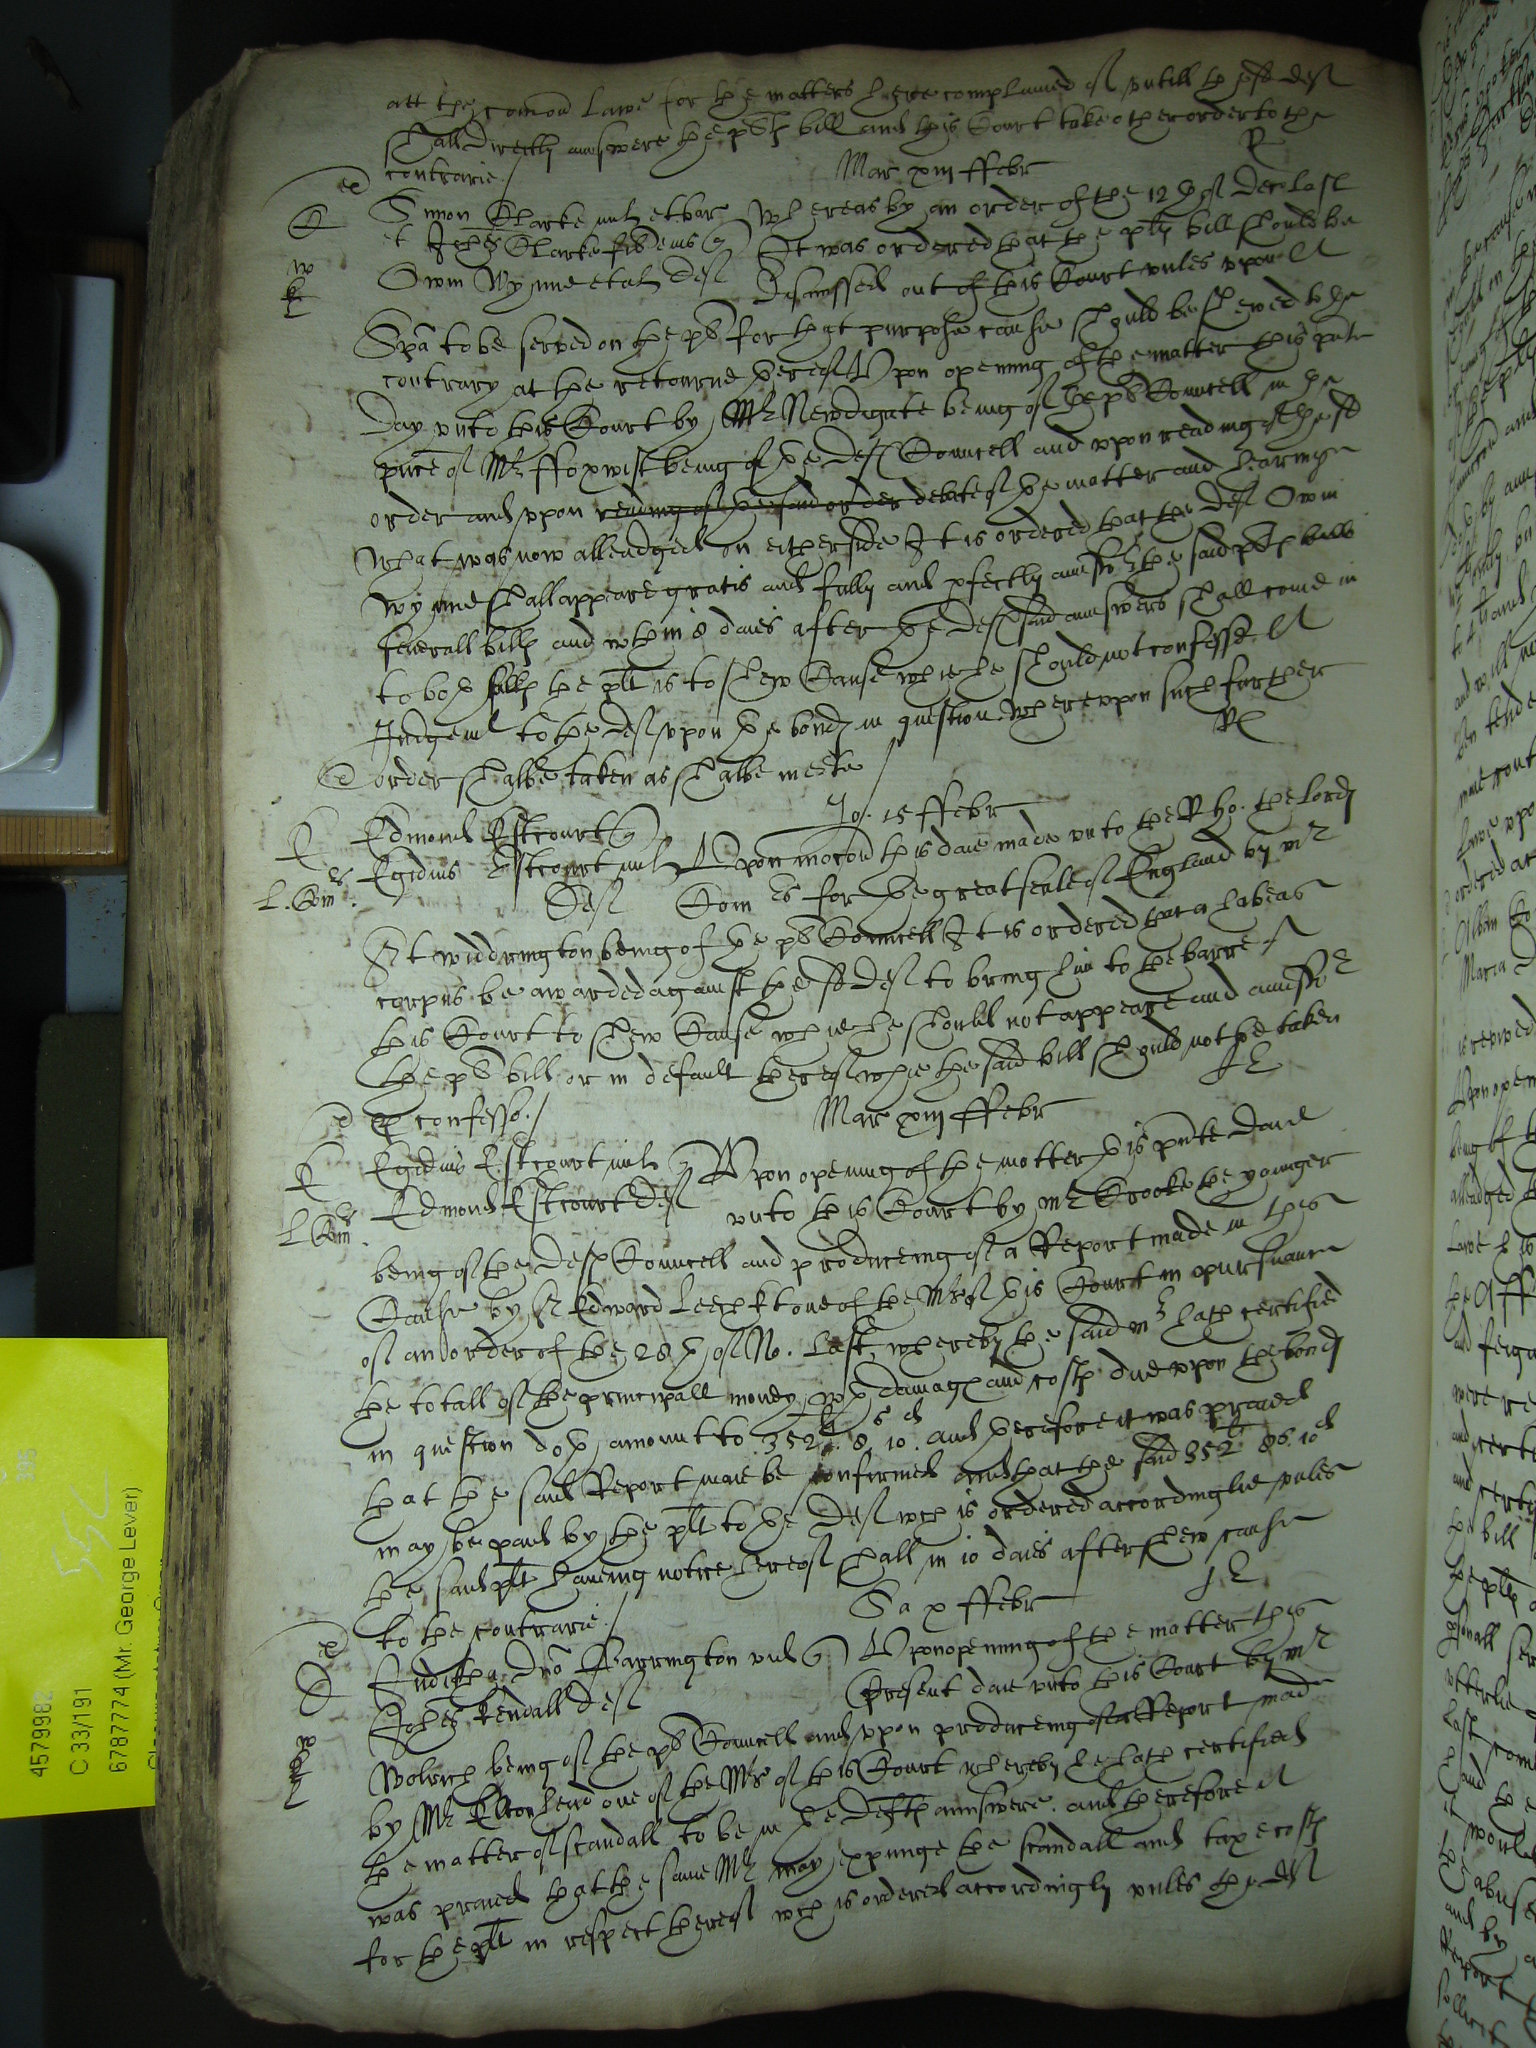 att the comon Lawe for the matters herein complained of untill the sd def
shall directly answere the pls bill and this Court take other order to the
contrarie /
Mar xiii ffebr
Simon Clarke mil et bar Whereas by an order of the 12th of Dec. last
et Johes Clarke It was ordered that the plts bill should be
Owin Wynne et al def dismissed out of this Court unles upon a
Spa to be served on the pl for that purpose cause should be shewed to the
contrary at the retourne thereof Upon opening of the matter this pnte
day unto this Court by Mr Newdigate being of the pls Councell in the
pnce of Mr ffoxwist being of the defs Councell and upon reading of the sd
order and upon reading of the said order debate of the matter and hearing
what was now alleadged on either side It is ordered that the def Owin
Wynne shall appeare gratis and fully and pfectly answer the said pls
severall bills and wthin 8 daies after the defs said answers shall come in
to both bills the plt is to shew Cause why he should not confesse a
Judgemt to the def upon the bonds in question whereupon such further
order shalbe taken as shalbe meete /
Jo. 15 ffebr
Edmond Estcourt
Egidius Estcourt mil Upon mocon this daie made unto the R ho. the Lords
L. Com. Def Comrs for the great seale of England by mr
St Widdrington being of the pls Councell It is ordered that a habeas
corpus be awarded against the sd def to bring him to the barre of
this Court to shew Cause why he should not appeare and answer
the pls bill or in default thereof why the said bill should not be taken
p confesso. /
Mar xiii ffebr
Egidius Estcourt mil Upon opening of the matter this pnte daie
Edmond Estcourt Def unto this Court by mr Crooke the younger
L Com.
being of the defs Councell and produceing of a Report made in this
Cause by Sr Edward Leech kt one of the Mrs of this Court in pursuance
of an order of the 28th of No. last, whereby the said mr hath certified
the totall of the principall money wth damages and costs due upon the bonds
in question doth amount to 352li. 8s. 10d. and therefore it was praied
that the said Report maie be confirmed and that the said 352li 8s. 10d
may be paid by the plt to the def wch is ordered accordinglie unles
the said plt haveing notice hereof shall in 10 daies after shew cause
to the contrarie /
Sa x ffebr
Juditha Dna Barrington vid Upon opening of the matter this
Johes Kendall def present daie unto this Court by mr
Wolrich being of the pls Councell and upon produceing of a Report made
by Mr Eltonhead one of the Mrs of this Court whereby he hath certified
the matter of scandall to be in the defts answere. and therefore it
was praied that the same Mr may expunge the scandall and taxe costs
for the plt in respect thereof wch is ordered accordingly unles the def
4579982
C 33/191
6787774 (Mr. George Lever)